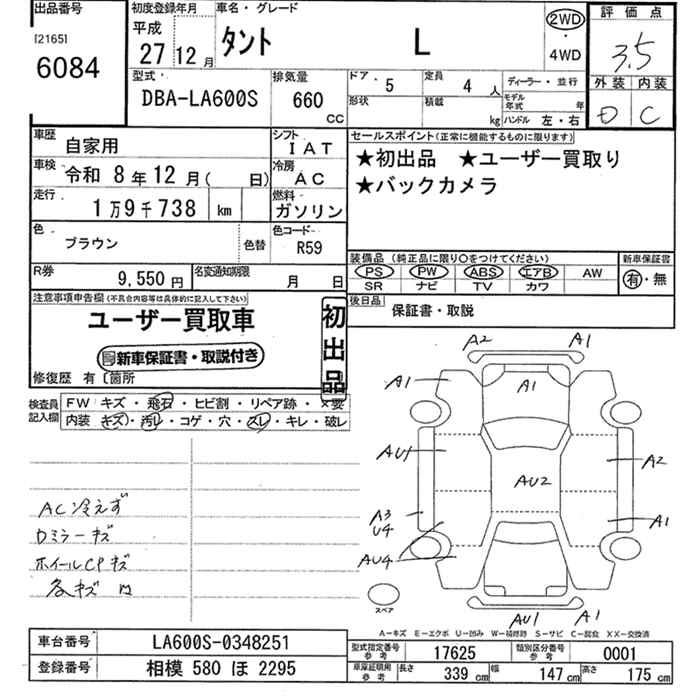 出品番号
[2165]
6084
初度登録年月
平成
27 12月
車名・グレード
タント L
2WD
・
4WD
評価点
3.5
外装 内装
D C
型式
DBA-LA600S
排気量
660 CC
ドア・ 5
定員 4 人
形状
積載 kg
ディーラー・並行
モデル年式 年
ハンドル 左・右
車歴 自家用
シフト IAT
車検 令和 8年 12月( 日)
冷房 AC
走行 1万9千738 km
燃料 ガソリン
色 ブラウン
色替
色コード R59
R券 9,550円
名変通知期限 月 日
セールスポイント(正常に機能するものに限ります)
★初出品 ★ユーザー買取り
★バックカメラ
装備品(純正品に限り○をつけてください)
PS PW ABS エアB AW
SR ナビ TV カワ
新車保証書
有・無
後日品
保証書・取説
注意事項申告欄(不具合内容等は具体的に記入して下さい)
ユーザー買取車
新車保証書・取説付き
初出品
修復歴 有〔箇所
検査員記入欄
FW キズ・飛石・ヒビ割・リペア跡・×要
内装 キズ・汚レ・コゲ・穴・スレ・キレ・破レ
AC冷えず
Dミラーキズ
ホイールCPキズ
各キズ凹
A2 A1
A1 A1
AU1 AU2 A2
A3
U4
A1
AU4
AU1 A1
スペア
A-キズ E-エクボ U-凹み W-補修跡 S-サビ C-腐食 XX-交換済
車台番号 LA600S-0348251
登録番号 相模 580 ほ 2295
型式指定番号 参考 17625
類別区分番号 参考 0001
車庫証明用 参考
長さ 339 cm
幅 147 cm
高さ 175 cm